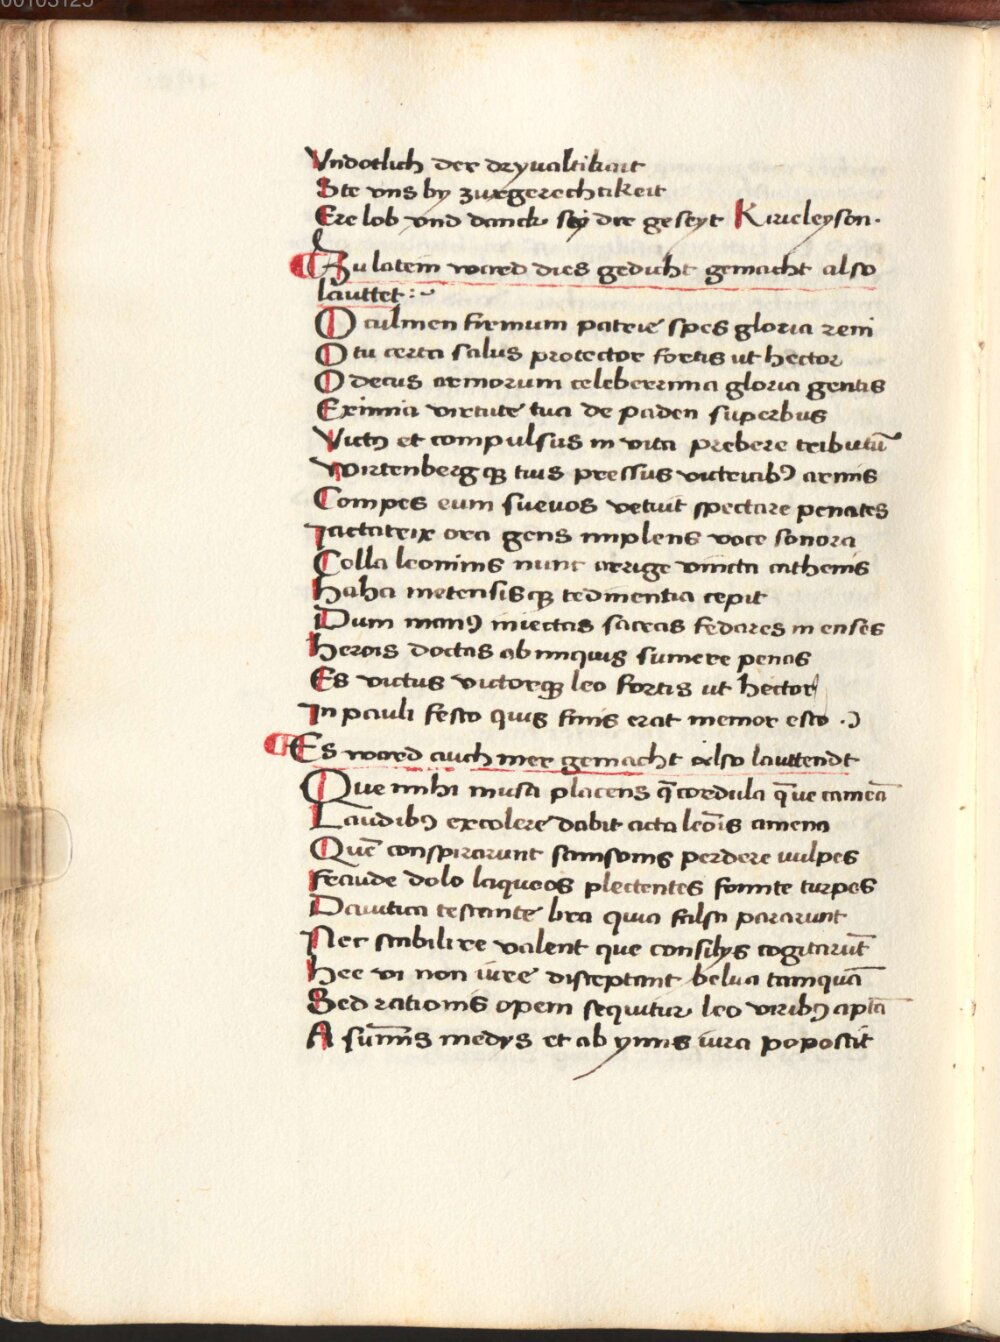 00103125
Vndotlich der dryualtikait
Ste vns by zurgerechtikeit
Ere lob vnd danck sey dir geseyt Kirieleyson.
Zu latein ward dies gedicht gemacht also
lauttet :~
O culmen firmum patrie spes gloria reni
O tu certa salus protector fortis ut hector
O decus armorum celeberrima gloria gentis
Eximia virtute tua de paden superbus
Victꝰ et compulsus in vita prebere tributū
Wirtenbergqꝫ tuis pressus victricibꝰ armis
Compes eum sueuos vetuit spectare penates
Iactatrix ora gens implens voce sonora
Colla leoninis nunc arrige vincta cathenis
haha metensisqꝫ te dementia cepit
Dum manꝰ iniectas sacras fedares in enses
herois doctas ab iniquis sumere penas
Es victus victorqꝫ leo fortis ut hector
In pauli festo quis finis erat memor esto .)
Es ward auch mer gemacht also lauttendt
Que mihi musa placens q̄ cordula q̄ue camēa
Laudibꝰ excolere dabit acta leōis amena
Quē conspirarunt samsonis perdere vulpes
fraude dolo laqueos plectentes fomite turpes
Dauitica testante lira quia falsa pararunt
Nec stabilire valent que consilijs cogitarūt
hee vi non iure disceptant belua tamquā
Sed rationis opem sequitur leo viribꝰ aptā
A sum̄is medys et ab ymis iura poposcit